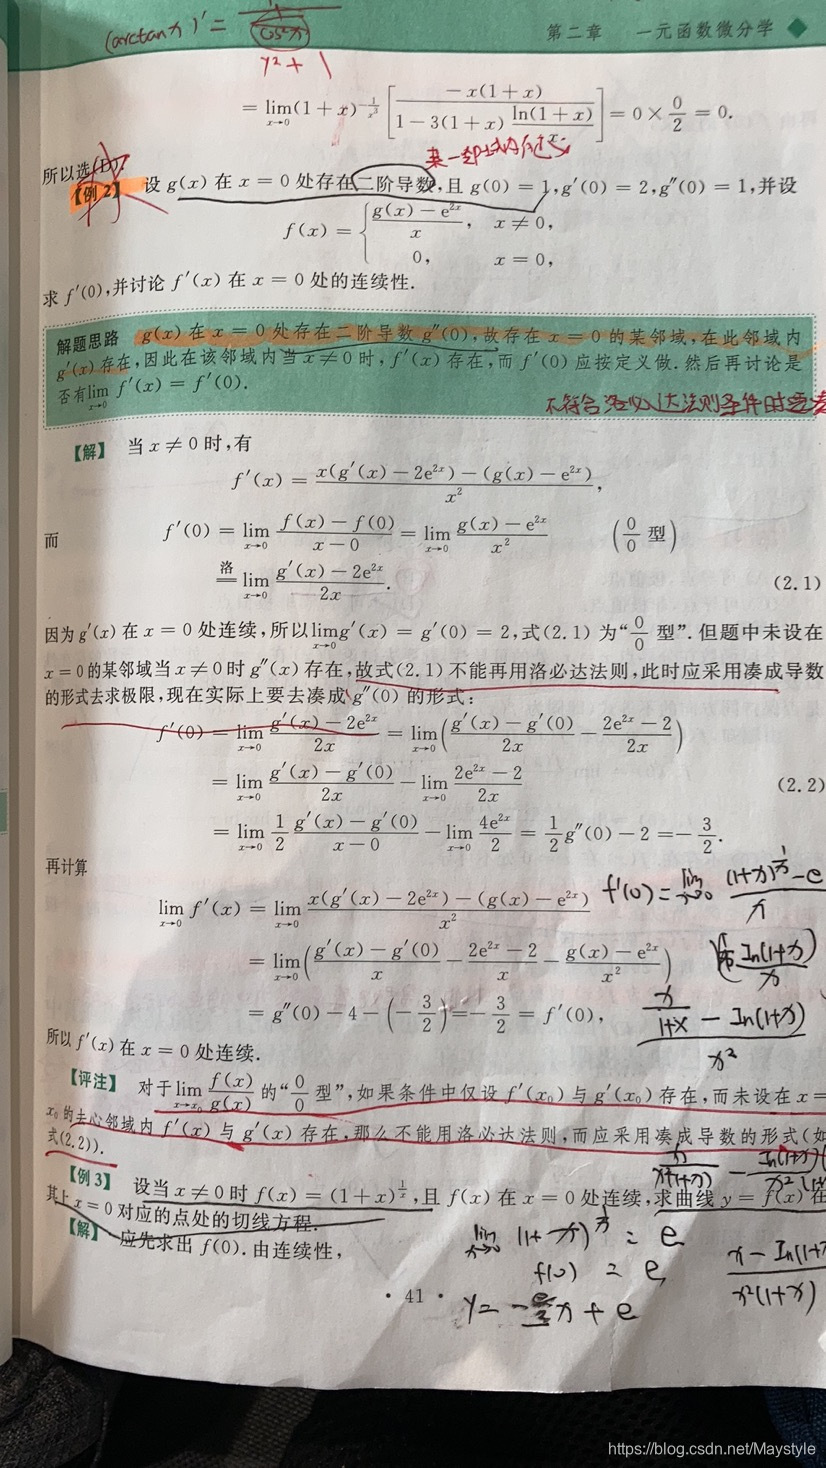 (arctan x)' = 1/(1/cos²x)
y²+1
第二章 一元函数微分学
= lim_{x→0} (1+x)^{-1/x³} [ -x(1+x) / (1-3(1+x) ln(1+x)/x) ] = 0 × 0/2 = 0.
所以选(D).
某一邻域内
【例2】 设 g(x) 在 x = 0 处存在二阶导数,且 g(0) = 1, g′(0) = 2, g″(0) = 1,并设
f(x) = { (g(x) − e^{2x})/x, x ≠ 0,
0, x = 0,
求 f′(0),并讨论 f′(x) 在 x = 0 处的连续性.
解题思路 g(x) 在 x = 0 处存在二阶导数 g″(0),故存在 x = 0 的某邻域,在此邻域内
g′(x) 存在,因此在该邻域内当 x ≠ 0 时, f′(x) 存在,而 f′(0) 应按定义做.然后再讨论是
否有 lim_{x→0} f′(x) = f′(0).
不符合洛必达法则条件时要
【解】 当 x ≠ 0 时,有
f′(x) = [x(g′(x) − 2e^{2x}) − (g(x) − e^{2x})] / x²,
而 f′(0) = lim_{x→0} (f(x) − f(0))/(x − 0) = lim_{x→0} (g(x) − e^{2x})/x² (0/0 型)
洛= lim_{x→0} (g′(x) − 2e^{2x})/(2x). (2.1)
因为 g′(x) 在 x = 0 处连续,所以 lim_{x→0} g′(x) = g′(0) = 2,式(2.1) 为“0/0 型”.但题中未设在
x = 0 的某邻域当 x ≠ 0 时 g″(x) 存在,故式(2.1) 不能再用洛必达法则,此时应采用凑成导数
的形式去求极限,现在实际上要去凑成 g″(0) 的形式:
f′(0) = lim_{x→0} (g′(x) − 2e^{2x})/(2x) = lim_{x→0} ( (g′(x) − g′(0))/(2x) − (2e^{2x} − 2)/(2x) )
= lim_{x→0} (g′(x) − g′(0))/(2x) − lim_{x→0} (2e^{2x} − 2)/(2x) (2.2)
= lim_{x→0} 1/2 (g′(x) − g′(0))/(x − 0) − lim_{x→0} 4e^{2x}/2 = 1/2 g″(0) − 2 = − 3/2.
再计算
lim_{x→0} f′(x) = lim_{x→0} [x(g′(x) − 2e^{2x}) − (g(x) − e^{2x})] / x²
f'(0) = lim_{x→0} ((1+x)^{1/x} − e)/x
= lim_{x→0} ( (g′(x) − g′(0))/x − (2e^{2x} − 2)/x − (g(x) − e^{2x})/x² )
ln(1+x)/x
= g″(0) − 4 − (− 3/2) = − 3/2 = f′(0),
(x/(1+x) − ln(1+x))/x²
所以 f′(x) 在 x = 0 处连续.
【评注】 对于 lim_{x→x₀} f(x)/g(x) 的“0/0 型”,如果条件中仅设 f′(x₀) 与 g′(x₀) 存在,而未设在 x =
x₀ 的去心邻域内 f′(x) 与 g′(x) 存在,那么不能用洛必达法则,而应采用凑成导数的形式(如
式(2.2)).
x/(x²(1+x)) − ln(1+x)
【例3】 设当 x ≠ 0 时 f(x) = (1+x)^{1/x},且 f(x) 在 x = 0 处连续,求曲线 y = f(x) 在
其上 x = 0 对应的点处的切线方程.
【解】 应先求出 f(0).由连续性,
lim_{x→0} (1+x)^{1/x} = e
f(0) = e
y = −e/2 x + e
x − ln(1+x
x²(1+x)
• 41 •
https://blog.csdn.net/Maystyle